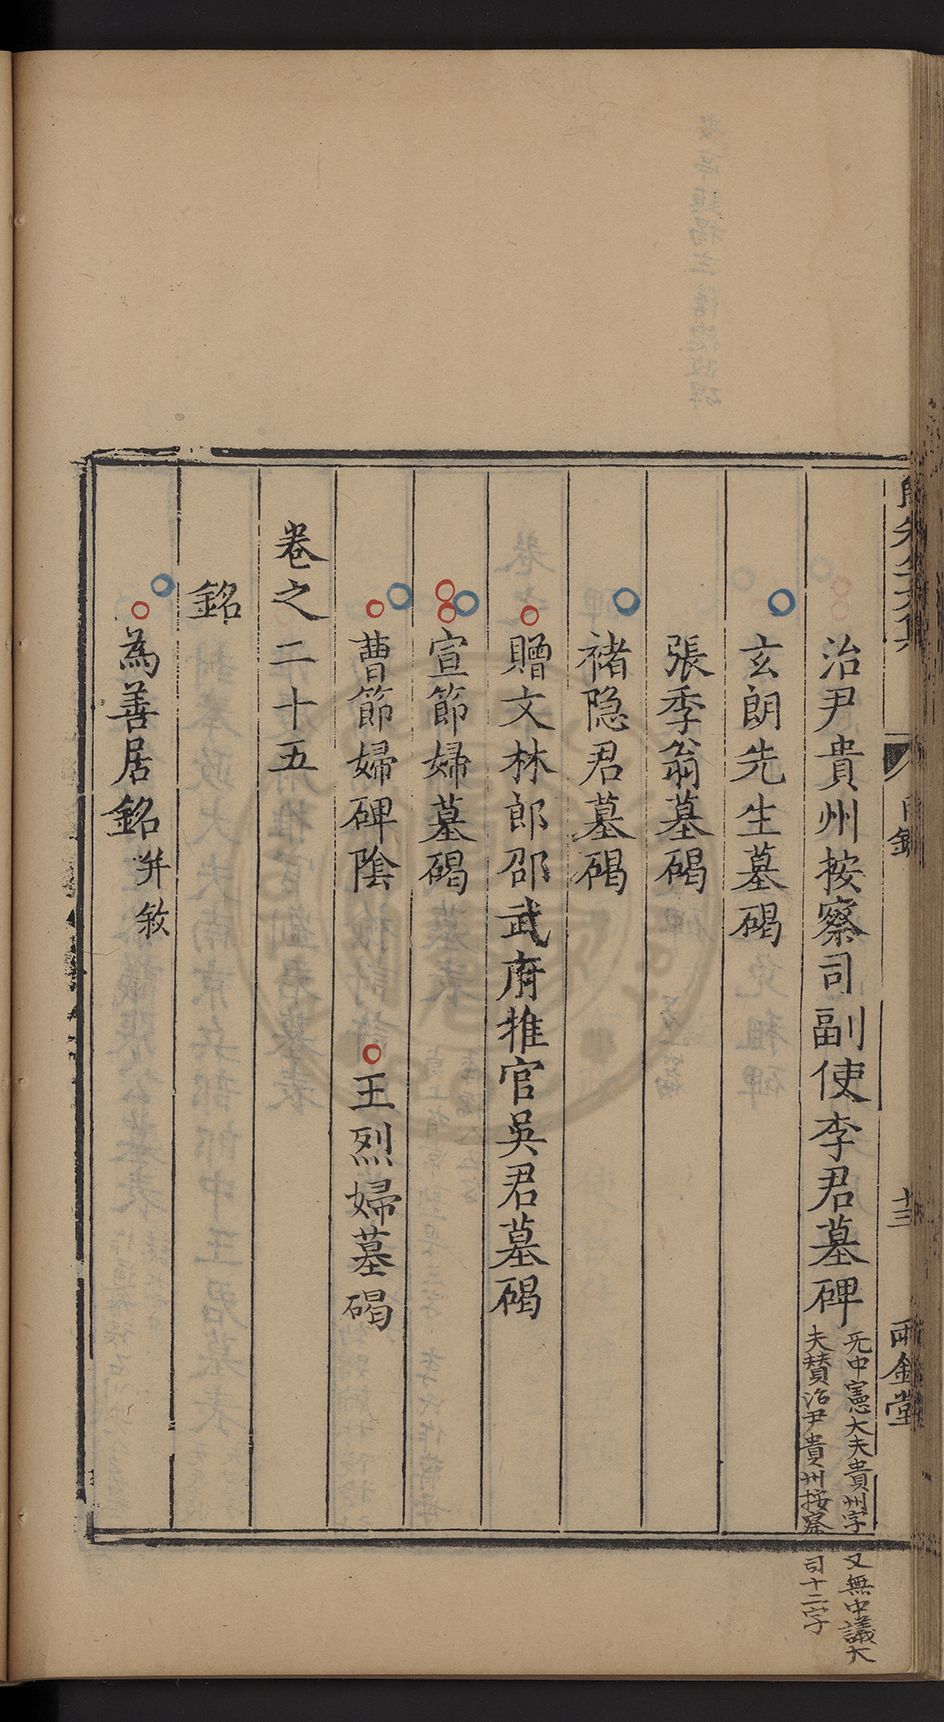 治尹貴州按察司副使李君墓碑
无中憲大夫貴州字又無中議大
夫賛治尹貴州按察司十二字
玄朗先生墓碣
張季翁墓碣
褚隐君墓碣
贈文林郎邵武府推官吳君墓碣
宣節婦墓碣
曹節婦碑陰　王烈婦墓碣
卷之二十五
銘
為善居銘并敘
目錄
十三
兩金堂